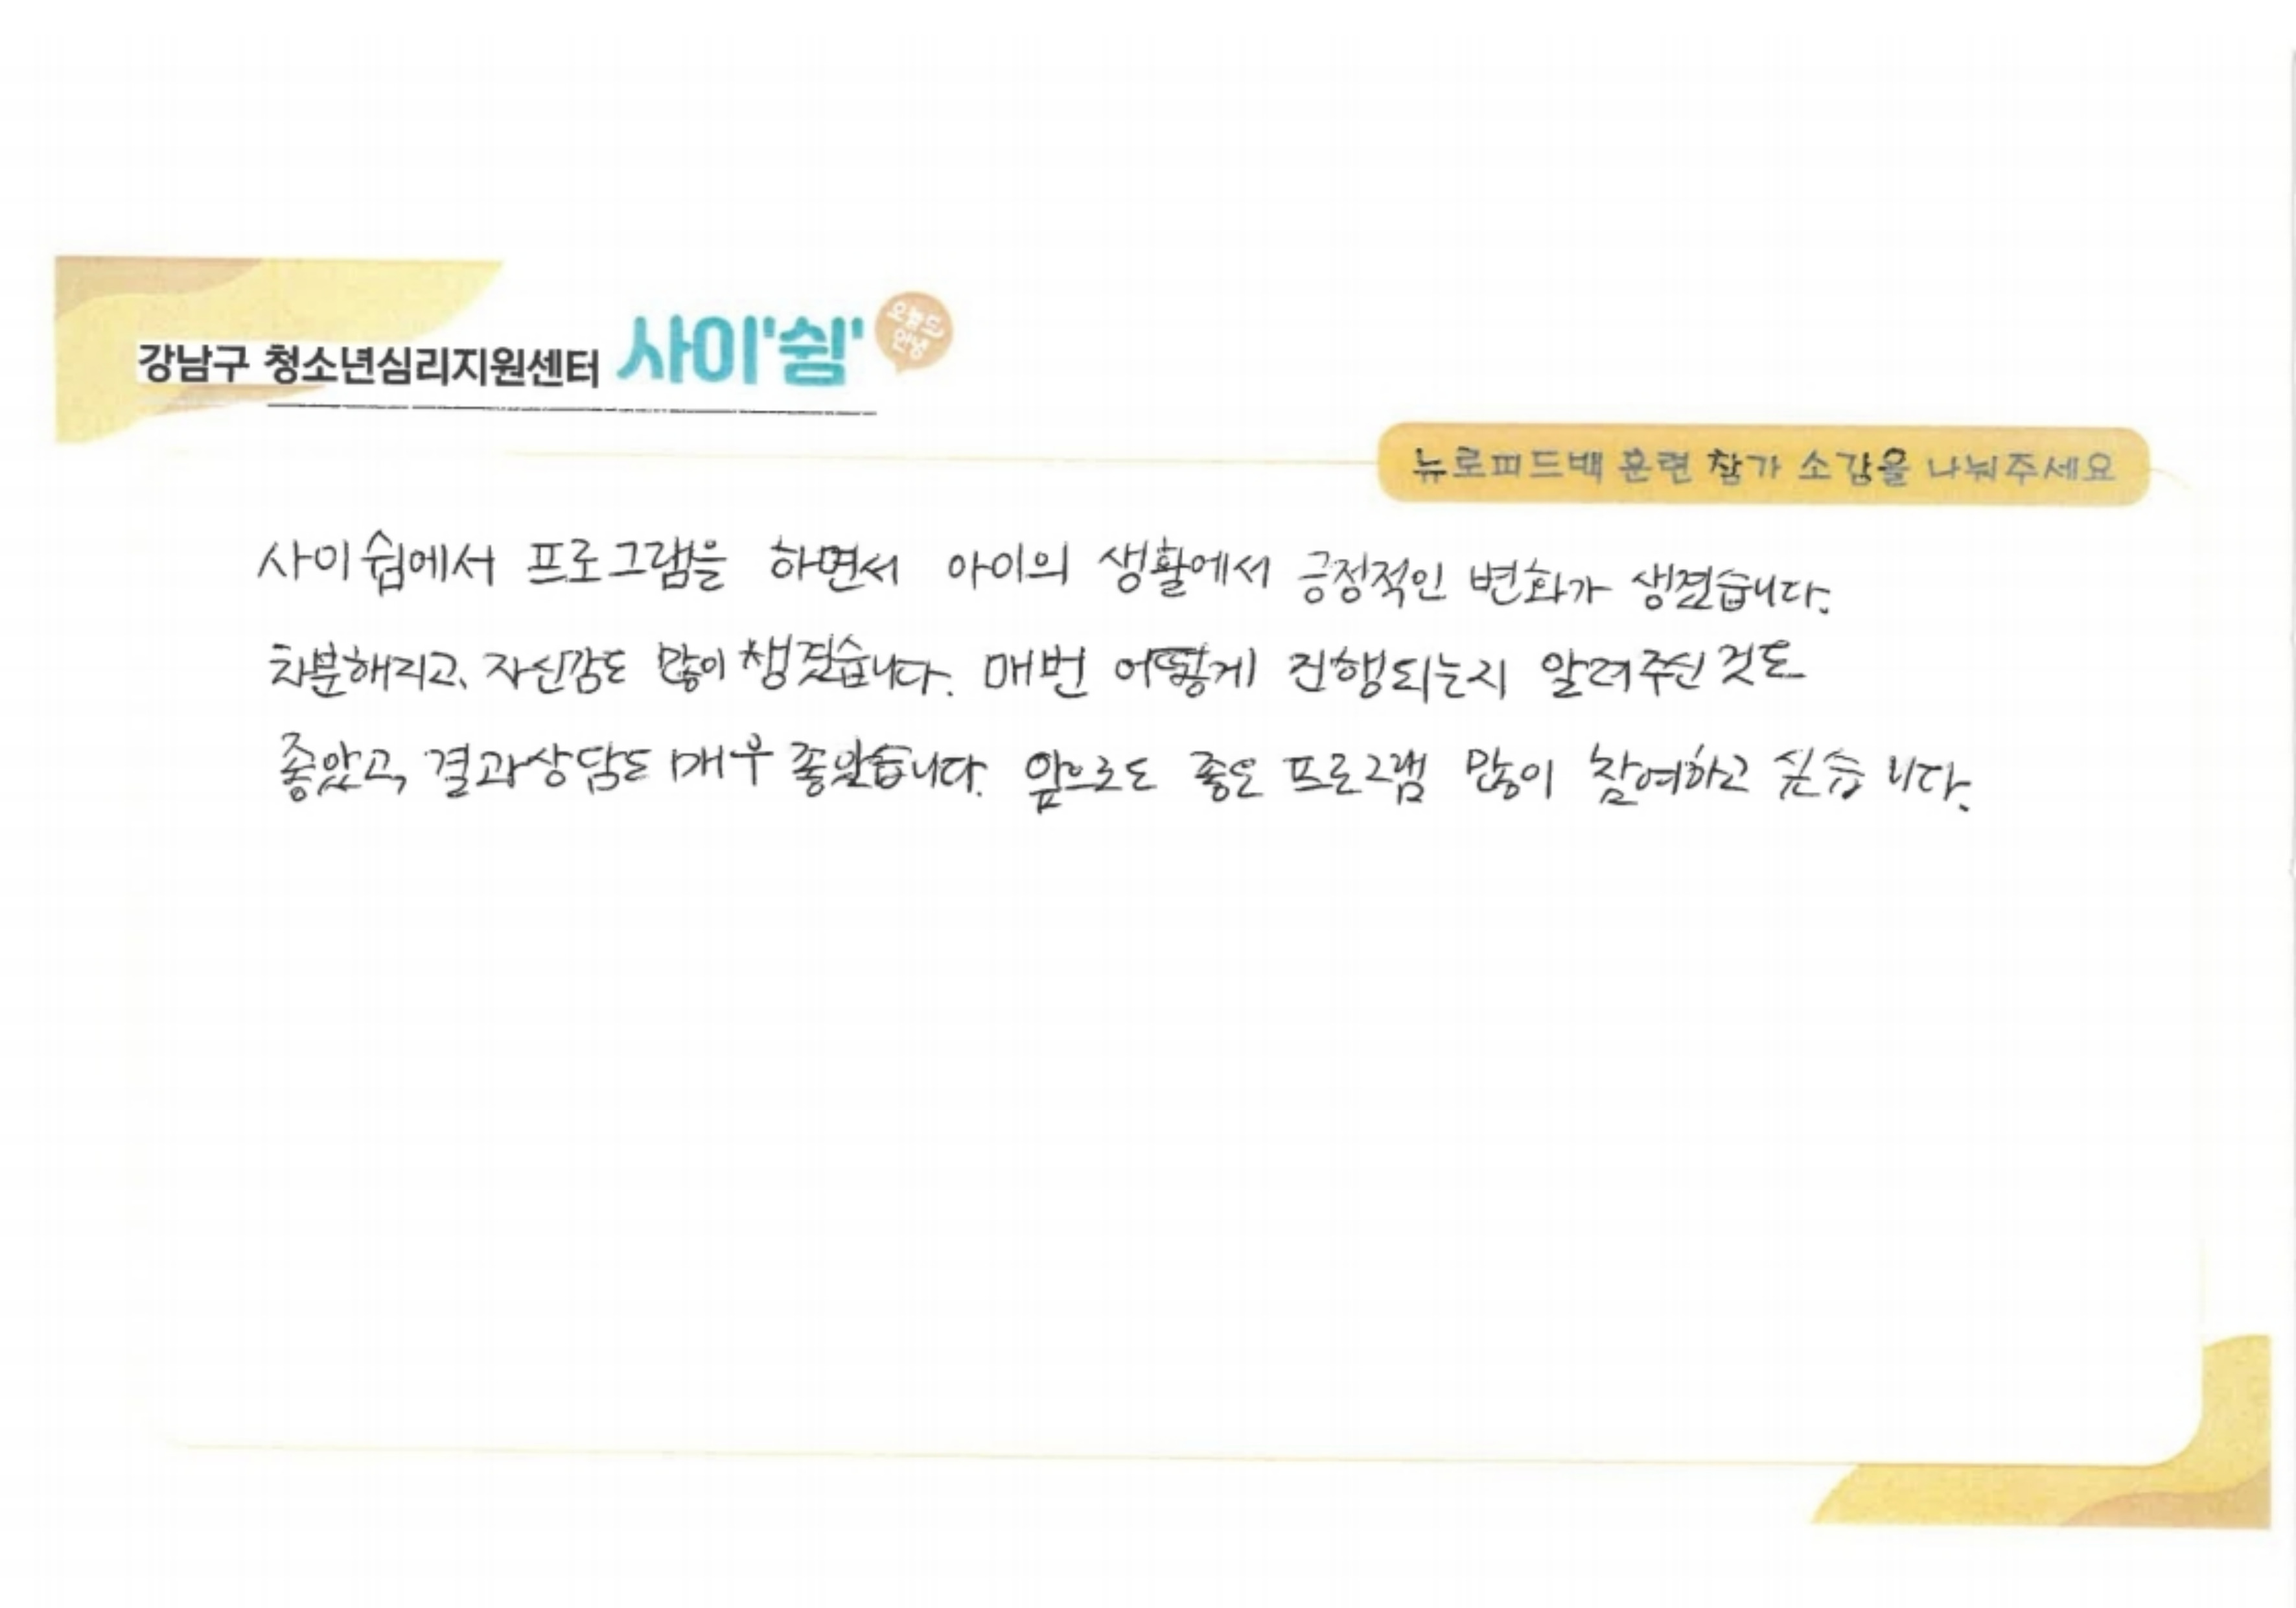 강남구 청소년심리지원센터 사이'쉼'
오늘도
안녕
뉴로피드백 훈련 참가 소감을 나눠주세요
사이쉼에서 프로그램을 하면서 아이의 생활에서 긍정적인 변화가 생겼습니다.
차분해지고, 자신감도 많이 생겼습니다. 매번 어떻게 진행되는지 알려주신 것도
좋았고, 결과상담도 매우 좋았습니다. 앞으로도 좋은 프로그램 많이 참여하고 싶습니다.